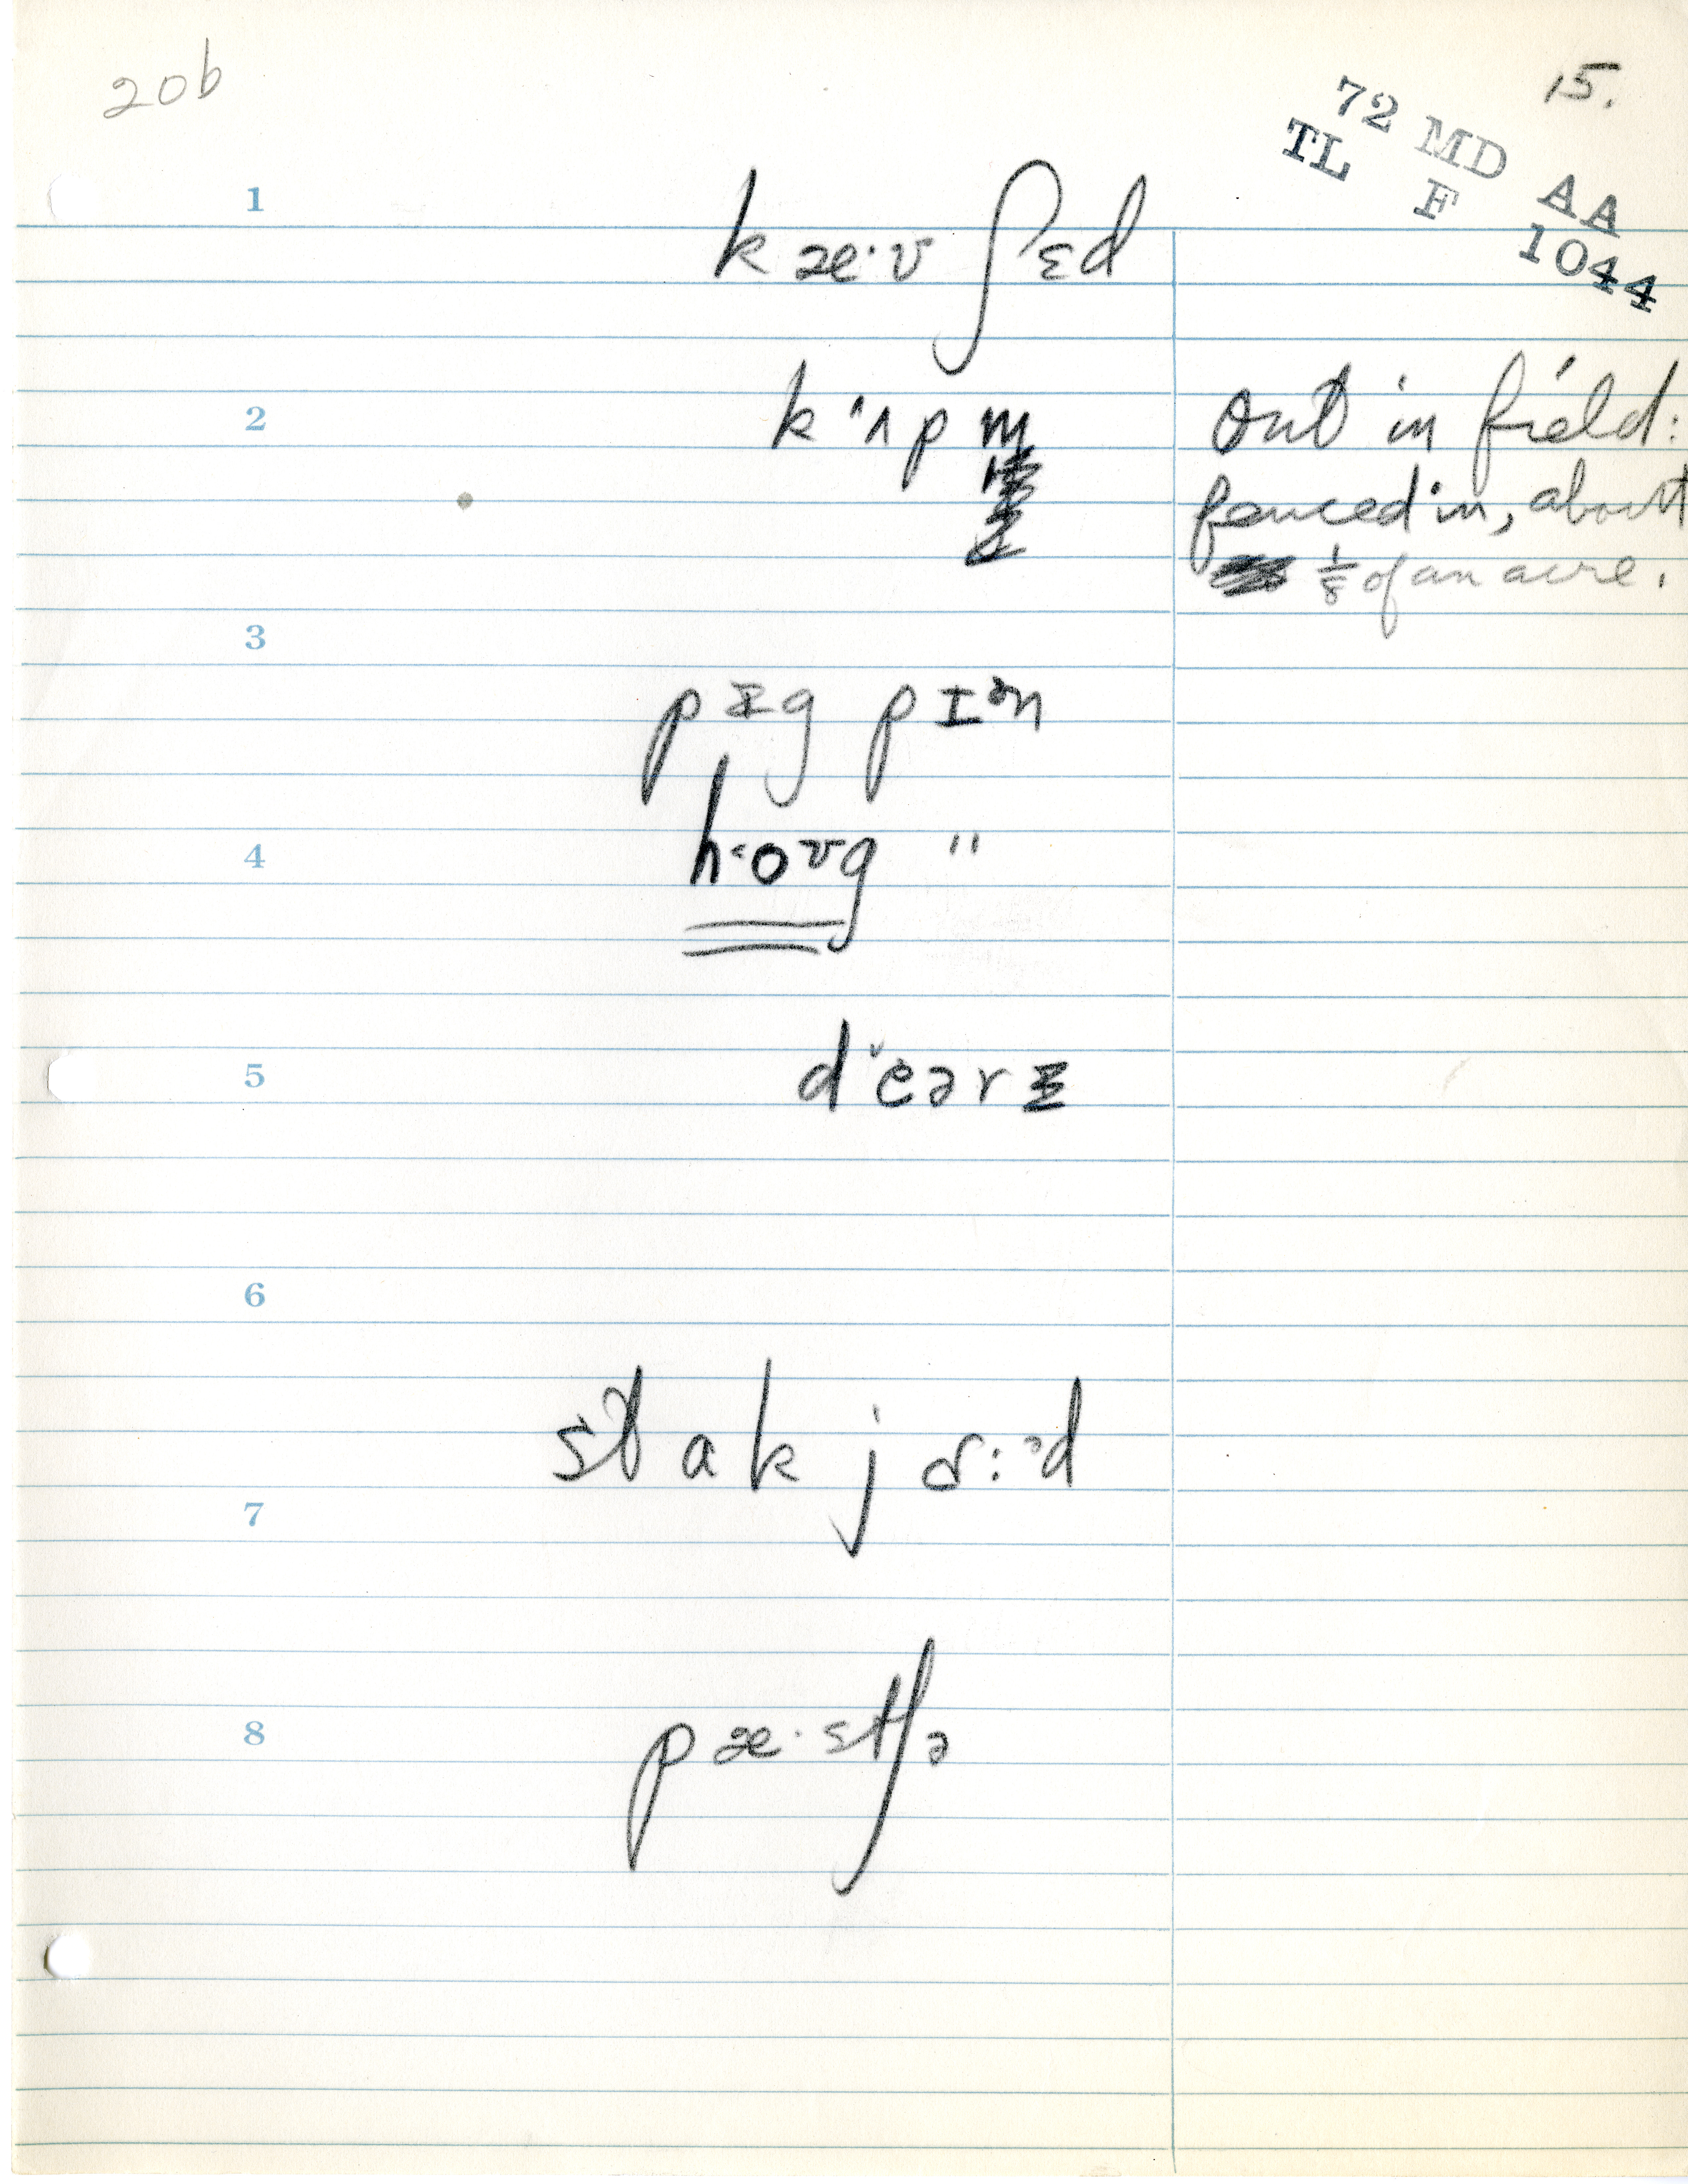 20b
15.
72 MD AA
TL F 1044
1
kæ·v ʃɛd
2
out in field:
fenced in, about
⅛ of an acre.
3
pɪg pɪᵊn
4
"
5
6
stak jɑ:ᵊd
7
8
pæ·stʃə